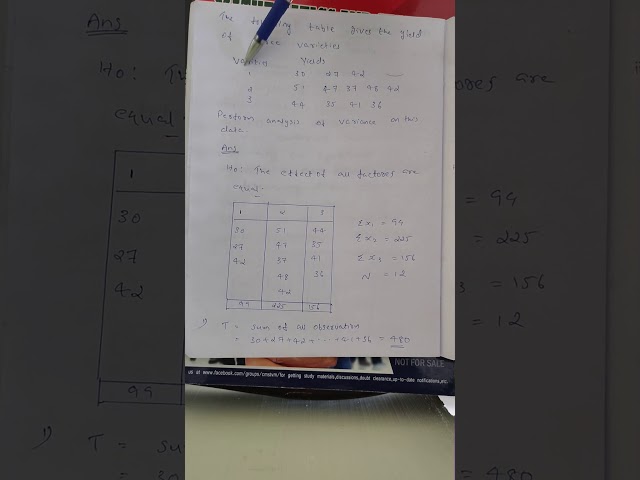 The following table gives the yield
of varieties
Varieties Yields
1 30 27 42
2 51 47 37 48 42
3 44 35 41 36
Perform analysis of variance on this
data.
Ans
Ho: The effect of all factores are
equal.
1 2 3
30 51 44
27 47 35
42 37 41
48 36
42
99 225 156
Σx₁ = 99
Σx₂ = 225
Σx₃ = 156
N = 12
1) T = sum of all observation
= 30+27+42+...+41+36 = 480
NOT FOR SALE
us at www.facebook.com/groups/cmatvm/for getting study materials,discussions,doubt clearance,up-to-date notifications,etc.